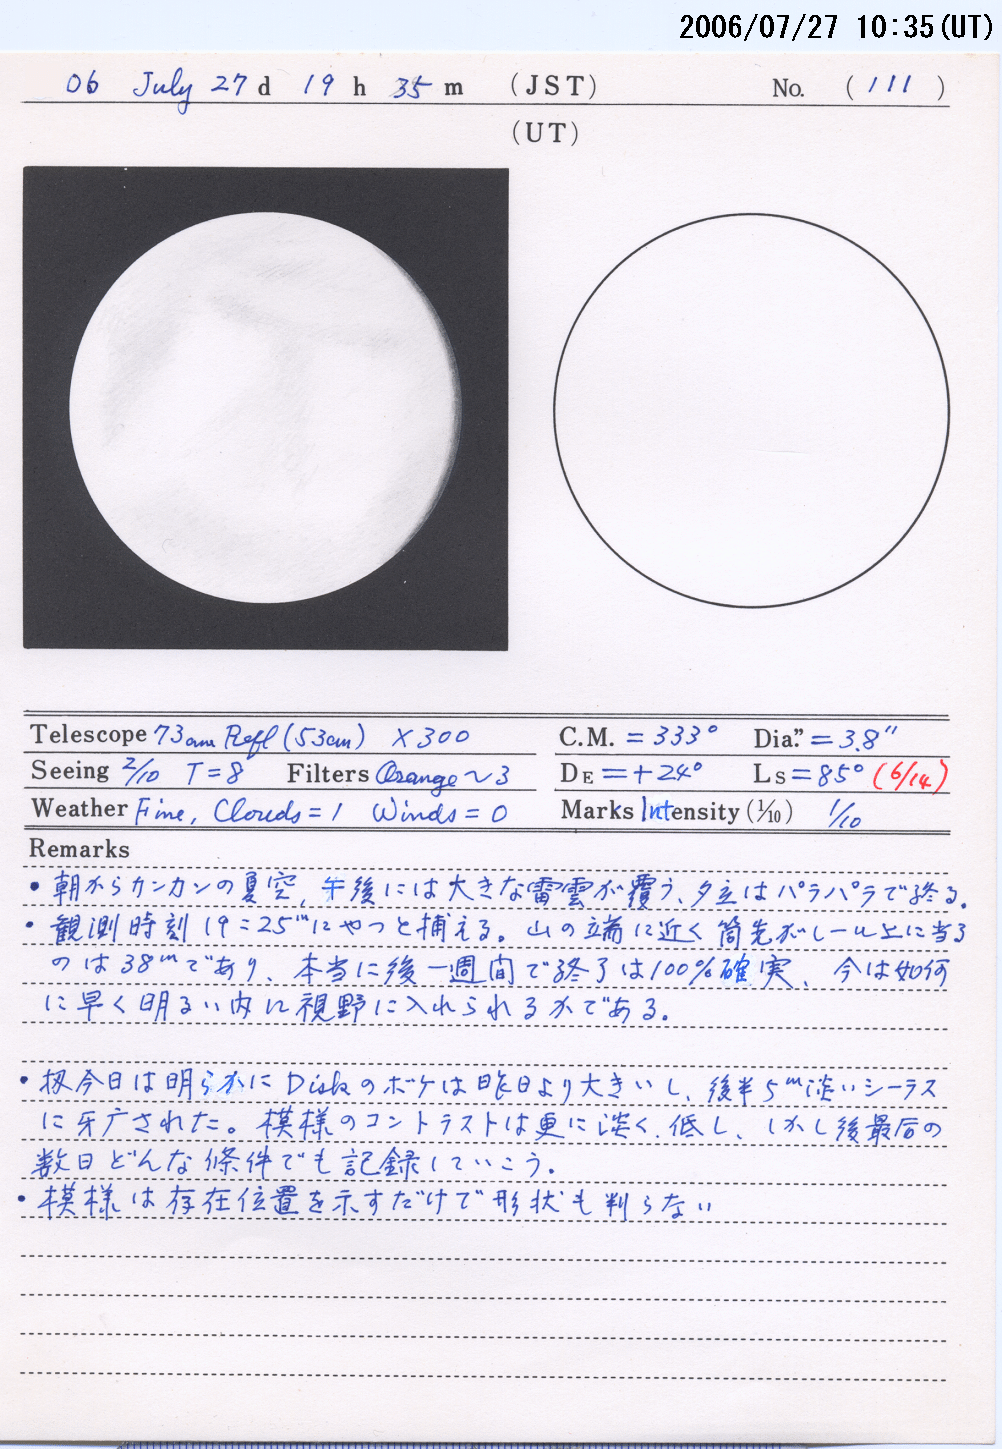 2006/07/27 10:35(UT)
06 July 27 d 19 h 35 m (JST) No. (111)
(UT)
Telescope 73cm Refl (53cm) ×300
C.M. = 333° Dia." = 3.8"
Seeing 2/10 T=8 Filters Orange~3
DE = +24° Ls = 85° (6/14)
Weather Fine, Clouds=1 Winds=0
Marks Intensity (1/10) 1/10
Remarks
• 朝からカンカンの夏空、午後には大きな雷雲が覆う、夕立はパラパラで終る.
• 観測時刻 19:25mにやっと捕える。山の端に近く筒先がレール上に当る
のは38mであり、本当に後一週間で終了は100%確実、今は如何
に早く明るい内に視野に入れられるかである.
• 扨今日は明らかにDiskのボケは昨日より大きいし、後半5m淡いシーラス
に された。模様のコントラストは更に淡く、低し、しかし後最后の
数日どんな條件でも記録していこう.
• 模様は存在位置を示すだけで形状も判らない